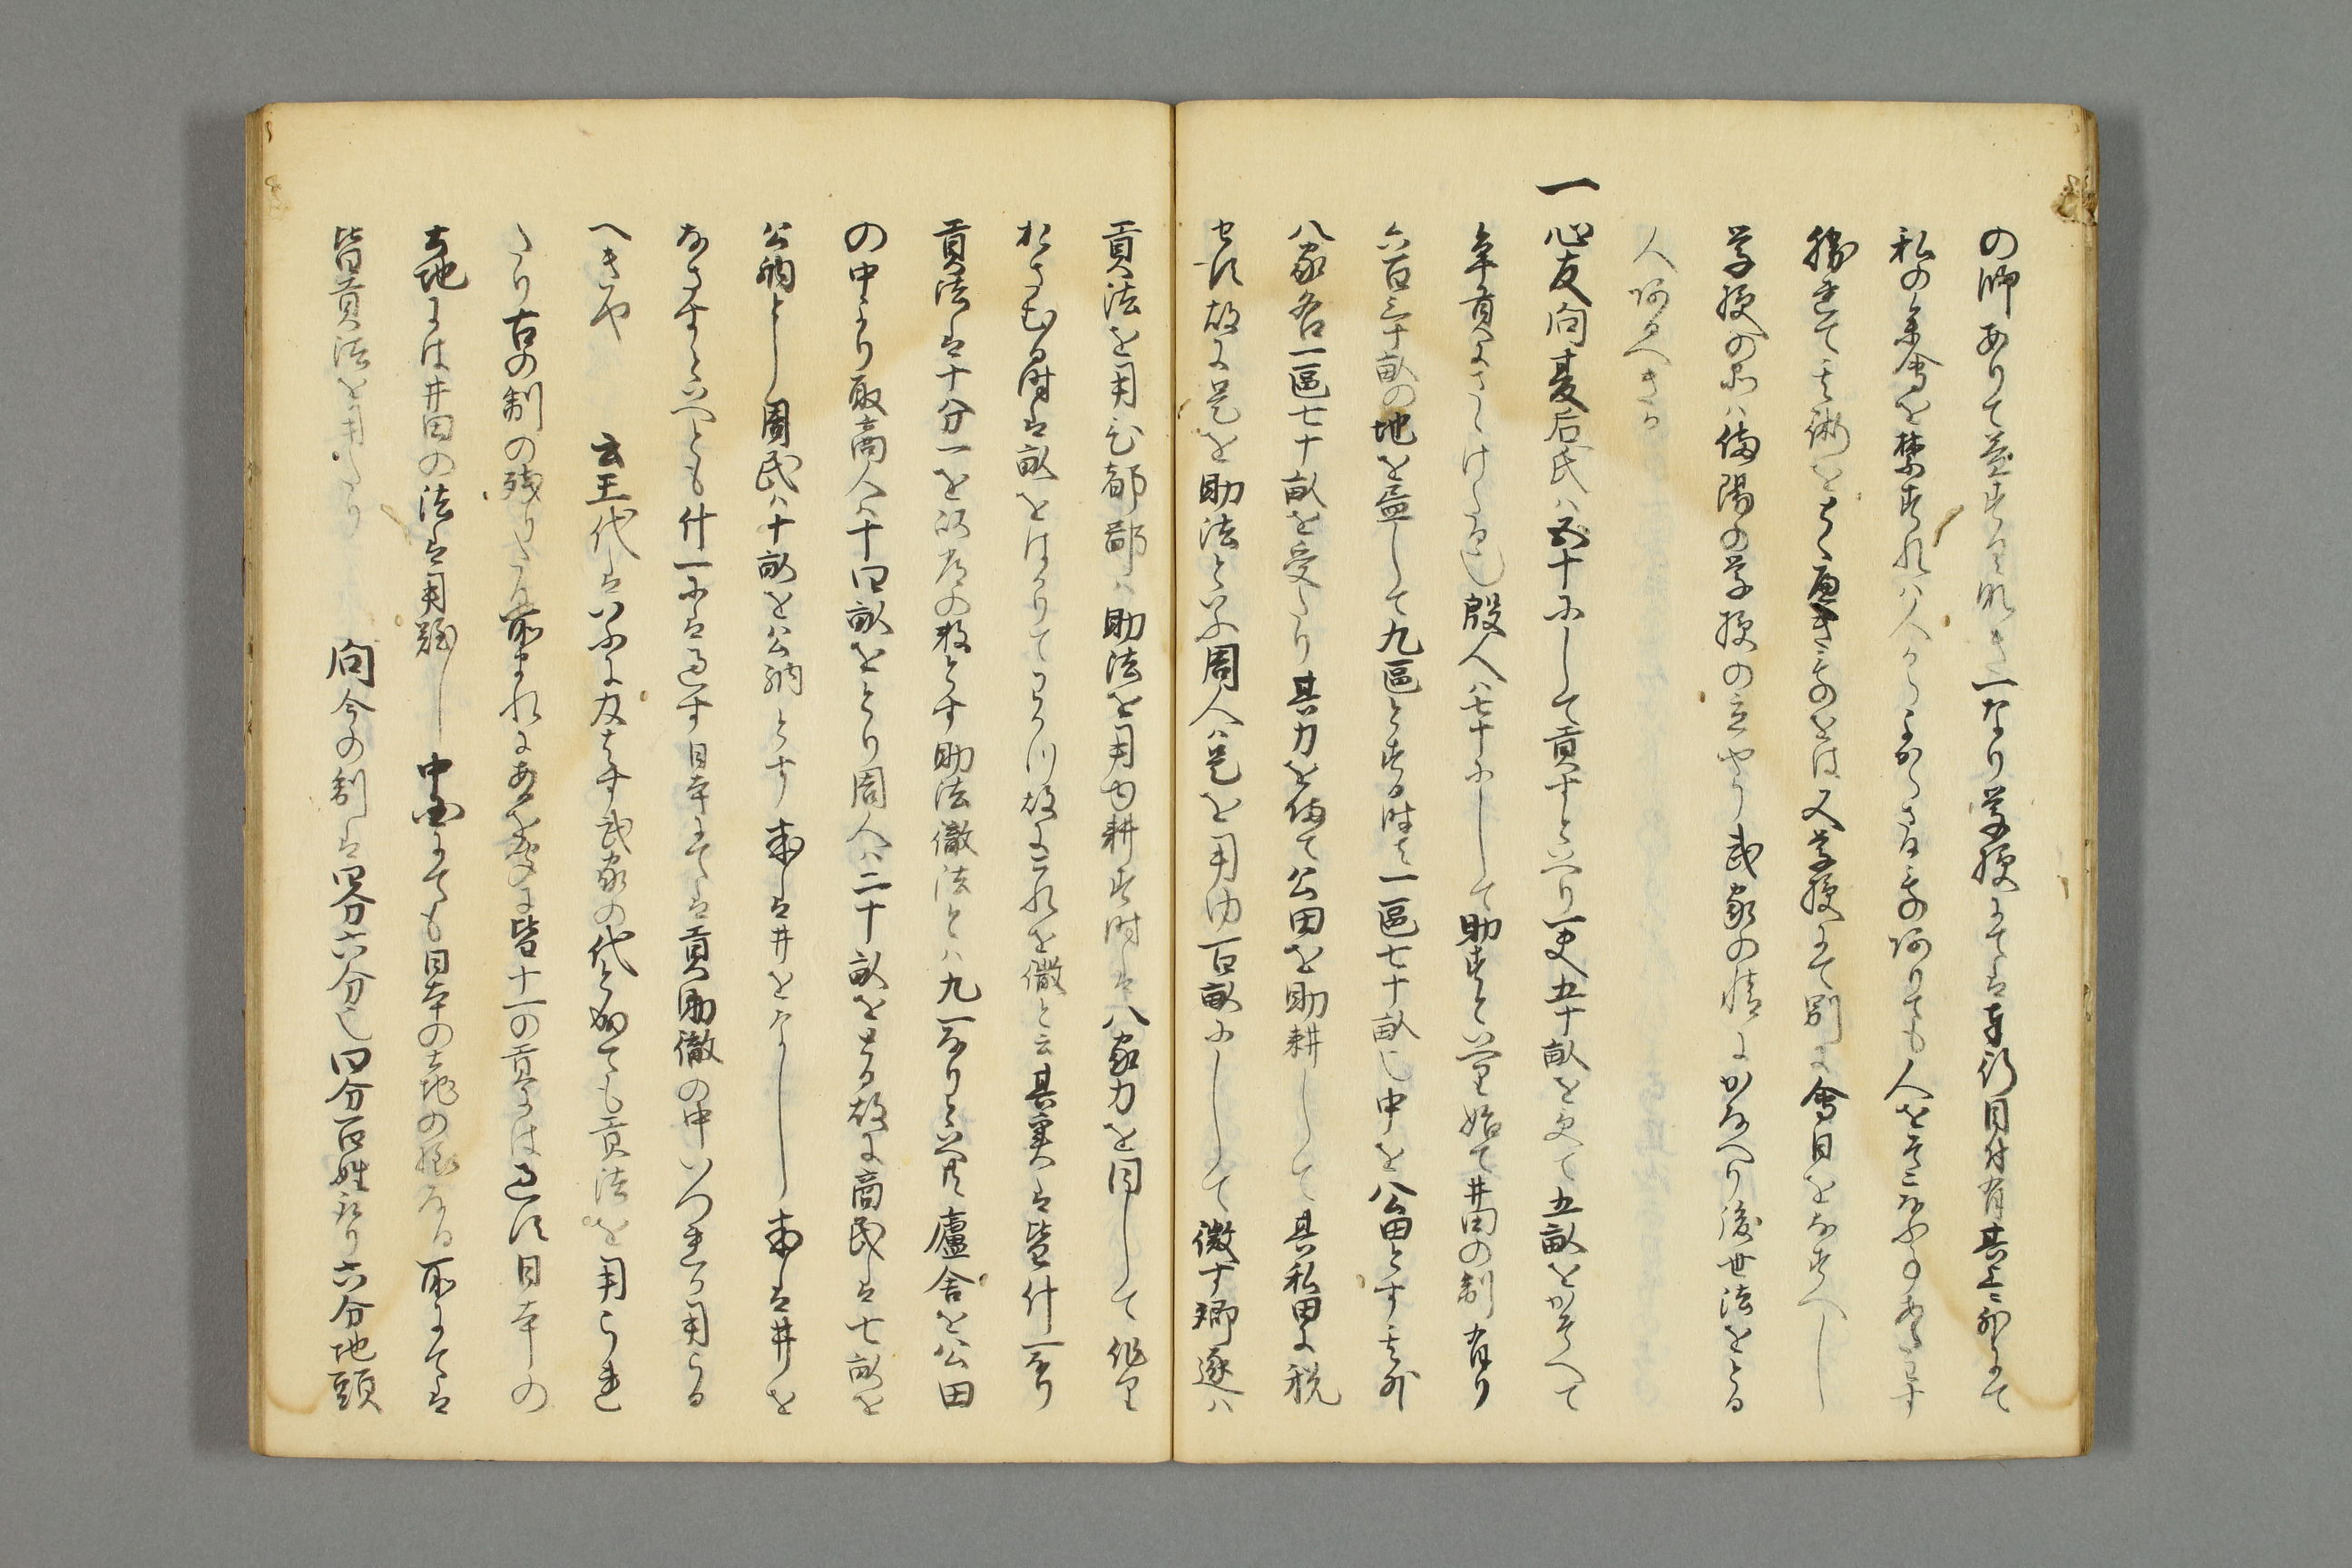 の師ありて益すくなき一なり学校にては奉行目付有其上ニ外にて
私の集會を禁すれハ人からよからさる者ありても人をそこなふ事あたはす
勝れて其術をよく得たきものをは又学校にて別に會日をなすへし
学校の事ハ備陽の学校の立やう武家の情にかなへり後世法をとる
人あるへきか
一心友問夏后氏ハ五十にして貢すといへり一夫五十畝を受て五畝をかそへて
年貢にさゝけたる也殷人ハ七十にして助すといへり始て井田の制有り
六百三十畝の地を畫して九區とする時ハ一區七十畝也中を公田とす其外
八家各一區七十畝を受たり其力を借て公田を助耕して其私田に税
せす故に是を助法といふ周人ハ是を用ゆ百畝にして徹す郷遂ハ
貢法を用ひ都鄙ハ助法を用ゆ耕す時は八家力を同して作り
おさむる時は畝をはかりてわかつ故にこれを徹と云其実は皆什一なり
貢法は十分一を以常の数とす助法徹法とハ九一なりといへ共廬舎を公田
の中より取商人ハ十四畝をとり周人ハ二十畝をとる故に商民は七畝を
公納とし周民ハ十畝を公納とす本は井を し本は井を
なさすといへとも什一には過す日本にては貢助徹の中いつれか用らる
へきや 云王代はいふに及はす武家の代と成ても貢法を用られ
たり古の制の残りたる所まれにあるを聞に皆十一の貢には過す日本の
土地には井田の法は用難し中国にても日本の土地の様なる所にては
皆貢法を用たり 問今の制は四分六分也四分百姓取り六分地頭